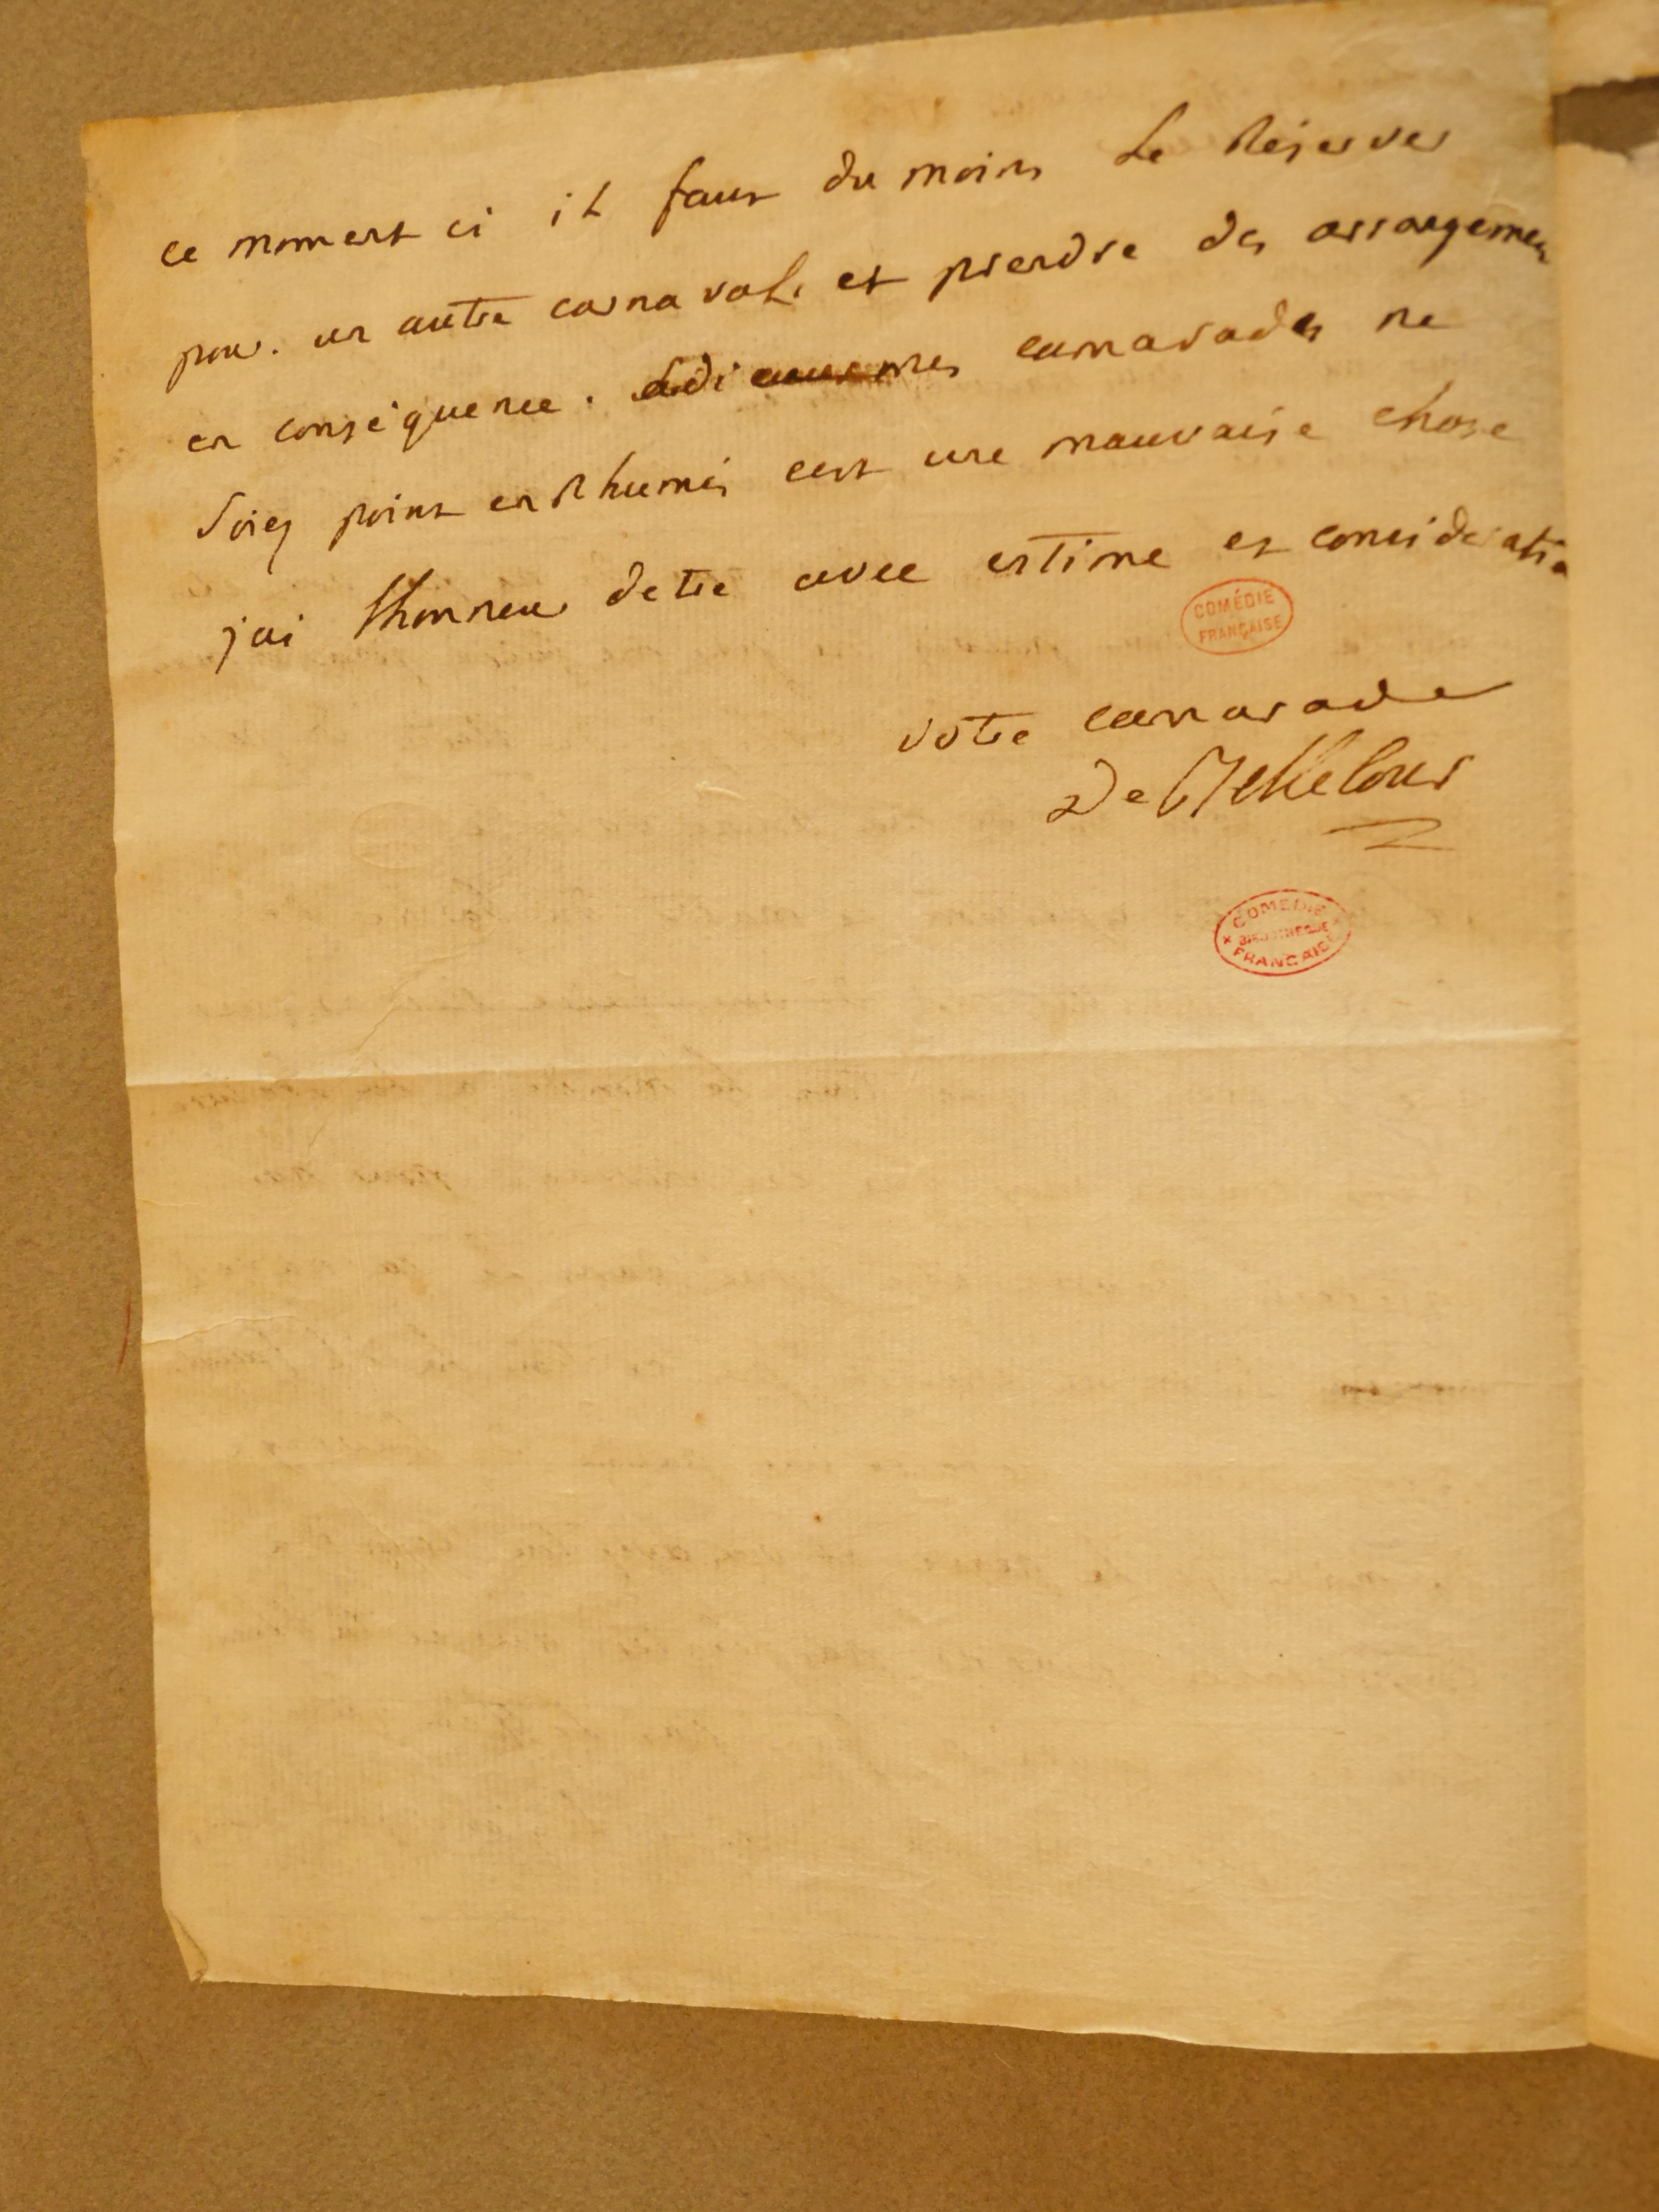 ce moment ci il faut du moins le Réserver
pour un autre carnaval. et prendre des arrangemens
en conséquence. adieu mes camarades ne
soiez point enRhumés cest une mauvaise chose
jai lhonneur detre avec estime et consideration
COMÉDIE
FRANÇAISE
votre camarade
De Bellecour
COMÉDIE
BIBLIOTHÈQUE
FRANÇAISE